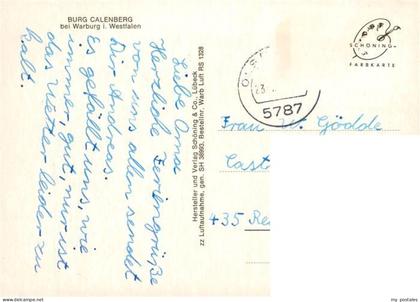 BURG CALENBERG
bei Warburg i. Westfalen
Liebe Oma
Herzliche Feriengrüße
von uns allen sendet
Dir Andreas.
Es gefällt uns, wie
immer, gut, nur ist
das Wetter leider zu
kalt.
Hersteller und Verlag Schöning & Co., Lübeck
zz Luftaufnahme, gen. SH 38693, Bestellnr. Warb Luft RS 1328
SCHÖNING
FARBKARTE
5787
Frau Gödde
Cast
435 Re
my-postcards.net